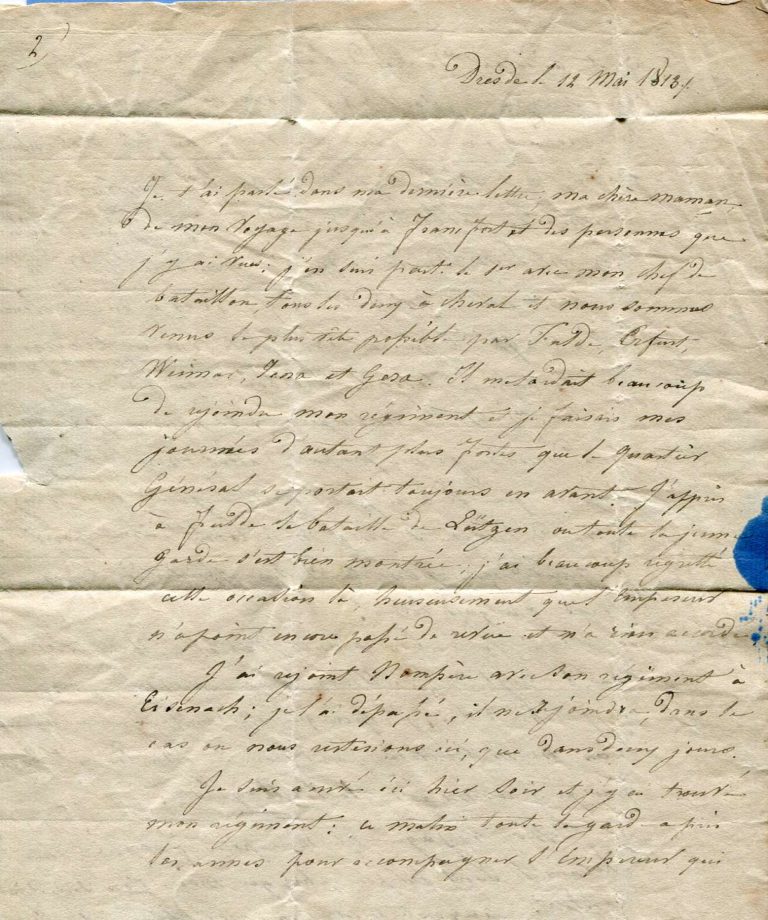 2)
Dresde le 12 Mai 1813.
Je t'ai parlé dans ma dernière lettre, ma chère maman,
de mon voyage jusqu'à Francfort et des personnes que
j'y ai vues; j'en suis parti le 1er avec mon chef de
bataillon, tous les deux à cheval et nous sommes
venus le plus vite possible par Fulde, Erfurt,
Weimar, Jena et Gera. Il me tardait beaucoup
de rejoindre mon régiment et je faisais mes
journées d'autant plus fortes que le quartier
Général se portait toujours en avant. J'appris
à Fulde la bataille de Lützen où toute la jeune
garde s'est bien montrée; j'ai beaucoup regretté
cette occasion là, heureusement que l'Empereur
n'a point encore passé de revue et n'a rien accordé
J'ai rejoint Bompère avec son régiment à
Eisenach; je l'ai dépassé, il ne joindra, dans le
cas où nous resterions ici, que dans deux jours.
Je suis arrivé ici hier soir et j'y ai trouvé
mon régiment: ce matin toute la garde a pris
les armes pour accompagner l'Empereur qui